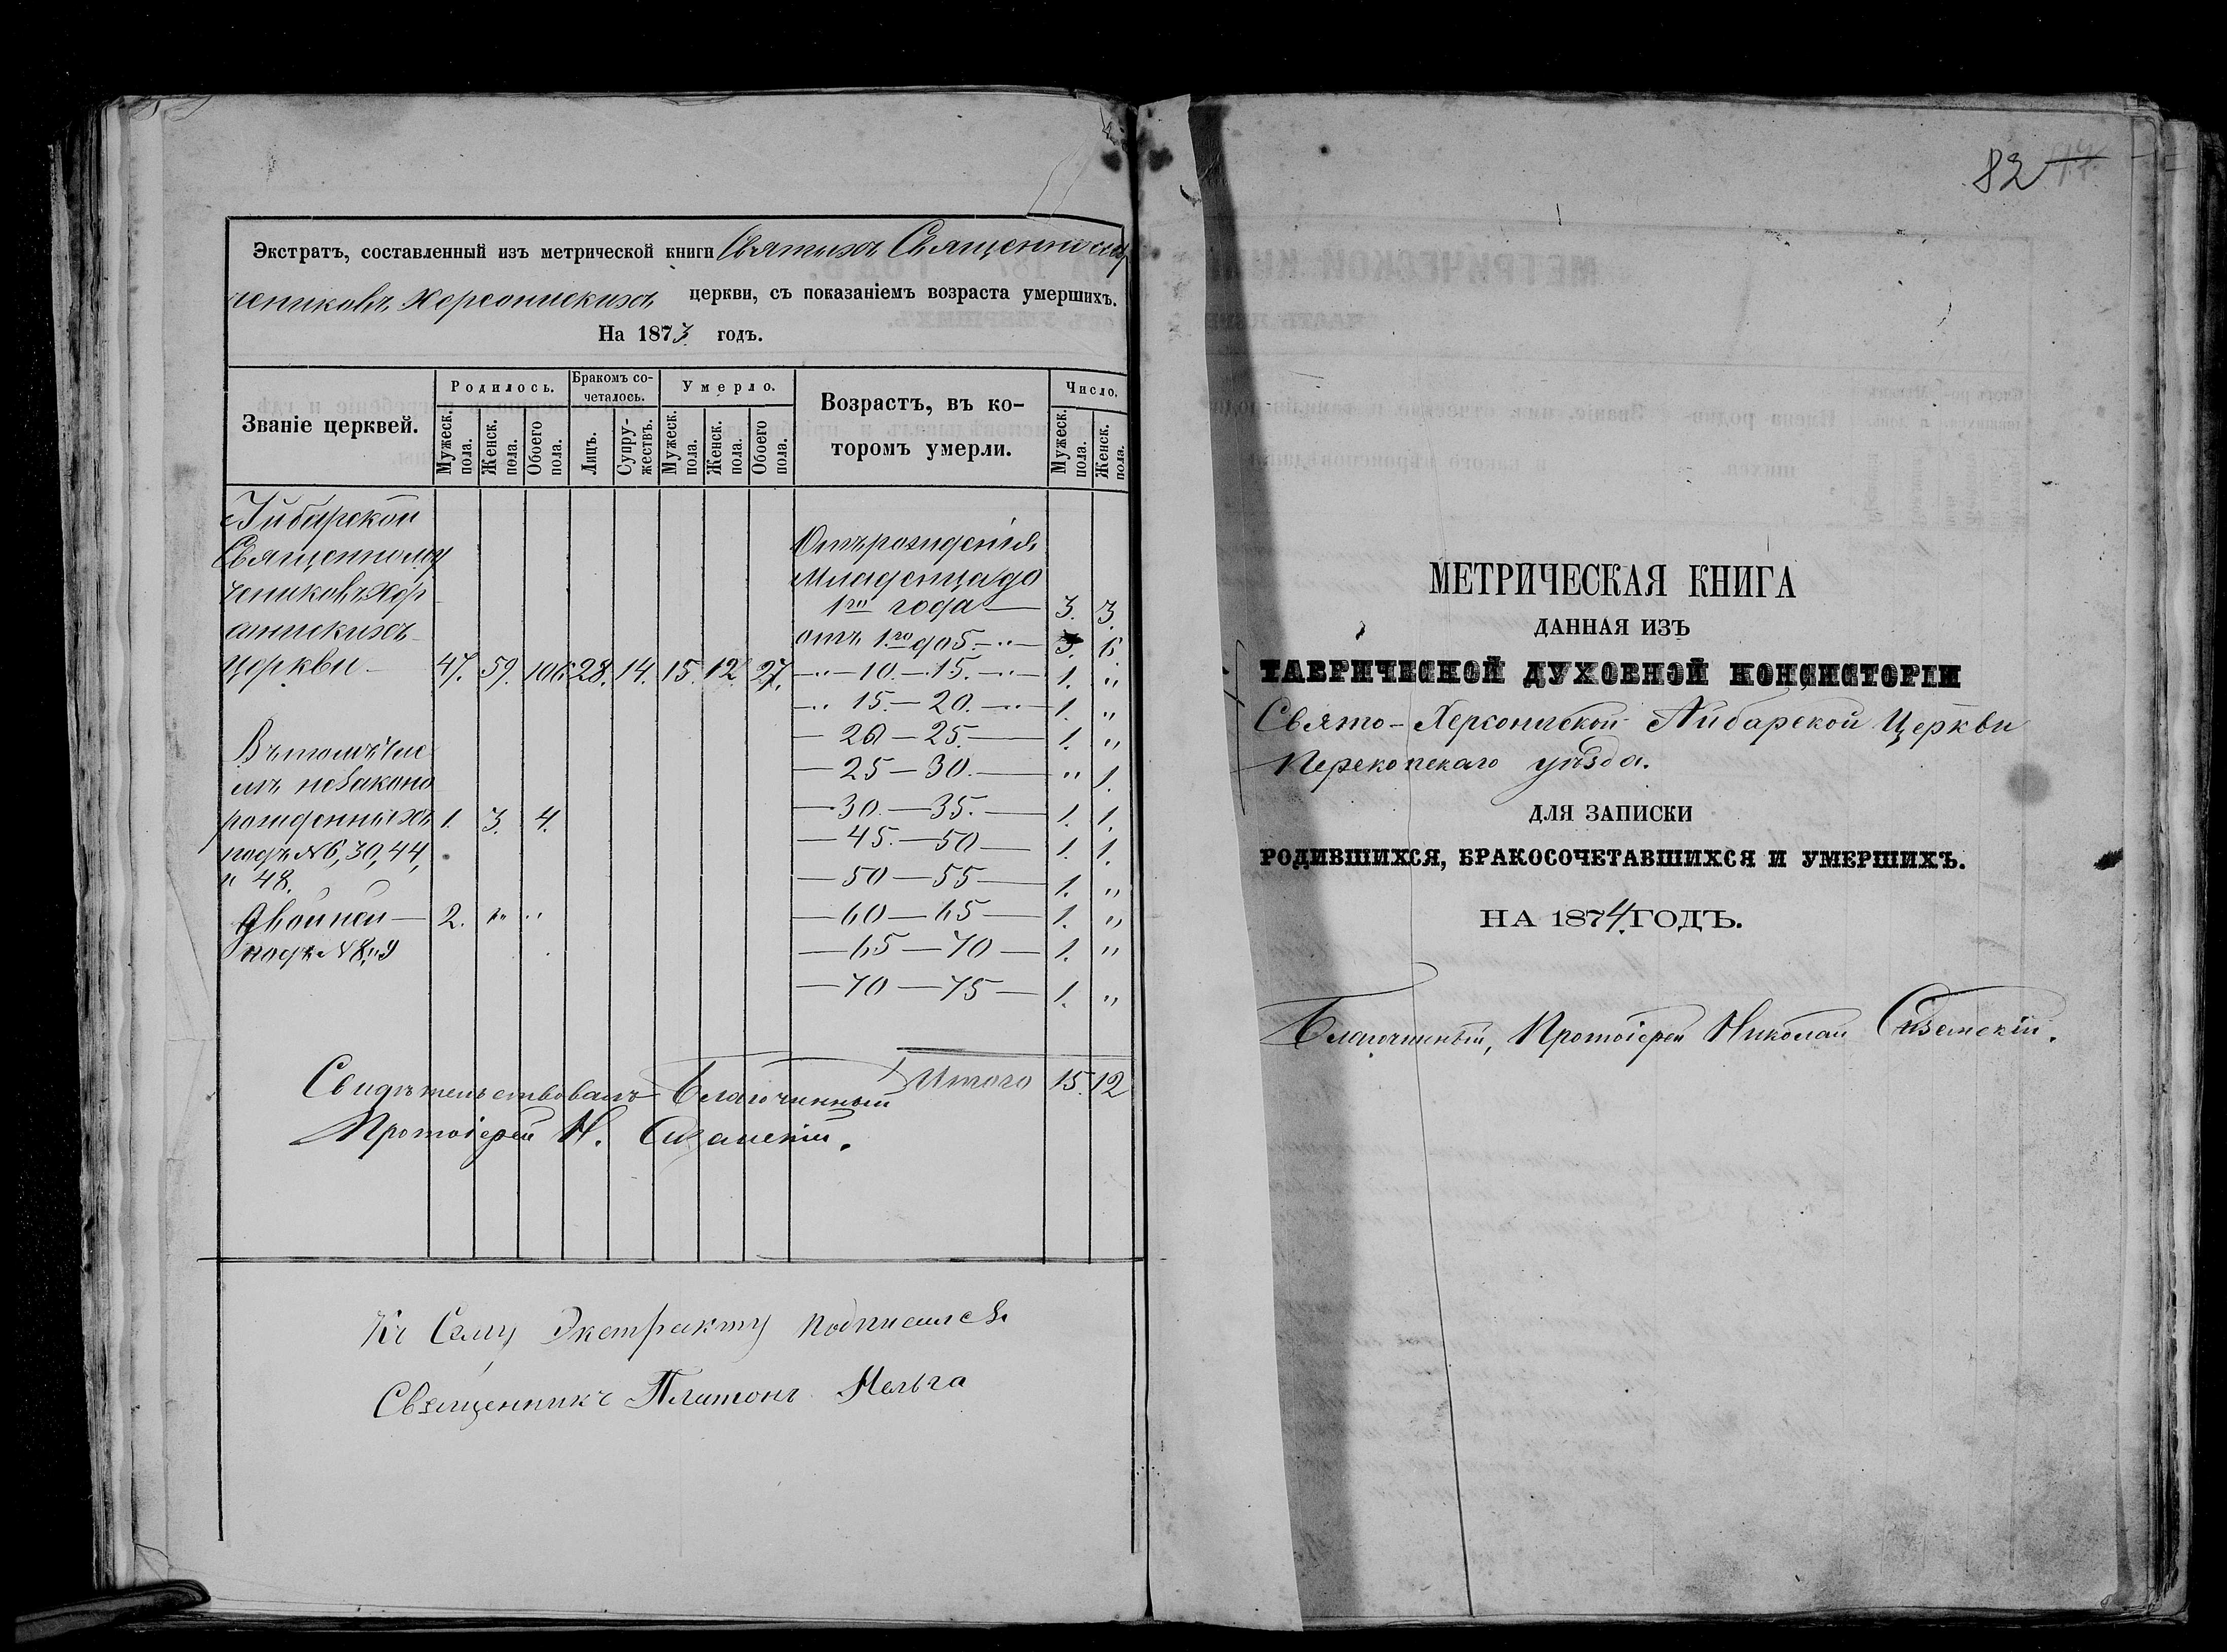 Экстратъ, составленный изъ метрической книги Святыхъ Священному
чениковъ Херсонискихъ церкви, съ показаніемъ возраста умершихъ.
На 1873 годъ.
Званіе церквей.
Родилось.
Бракомъ сочеталось.
Умерло.
Возрастъ, въ которомъ умерли.
Число.
Мужеск. пола.
Женск. пола.
Обоего пола.
Лицъ.
Супружествъ.
Мужеск. пола.
Женск. пола.
Обоего пола.
Мужеск. пола.
Женск. пола.
Айбарской
Священному
чениковъ Хер
церкви — 47. 59. 106 28. 14. 15. 12. 27.
Въ томъ чис
лѣ незаконо
рожденныхъ 1. 3. 4.
подъ №6, 30, 44,
и 48.
Двойней — 2. " "
подъ №8 и 9
Отъ рожденія
Младенца до
1го года — 3. 3.
отъ 1.го до 5. — " — 3. 6
— " — 10. — 15. — " — 1. "
— " 15. — 20. — " — 1. "
— 20 — 25. — 1. "
— 25 — 30. — " 1.
— 30. — 35. — 1. 1.
— 45. — 50 — 1. 1.
— 50 — 55 — 1. "
— 60 — 65 — 1. "
— 65 — 70 — 1. "
— 70 — 75 — 1. "
Итого 15. 12
Свидѣтельствовалъ Благочинный
Протоіерей Н.
Къ Сему Экстракту подписался
Священникъ Платонъ
82 17.
МЕТРИЧЕСКАЯ КНИГА
ДАННАЯ ИЗЪ
ТАВРИЧЕСКОЙ ДУХОВНОЙ КОНСИСТОРІИ
Свято-Херсониской Айбарской Церкви
Перекопскаго уѣзда.
ДЛЯ ЗАПИСКИ
РОДИВШИХСЯ, БРАКОСОЧЕТАВШИХСЯ И УМЕРШИХЪ.
НА 1874. ГОДЪ.
Благочинный, Протоіерей Николай